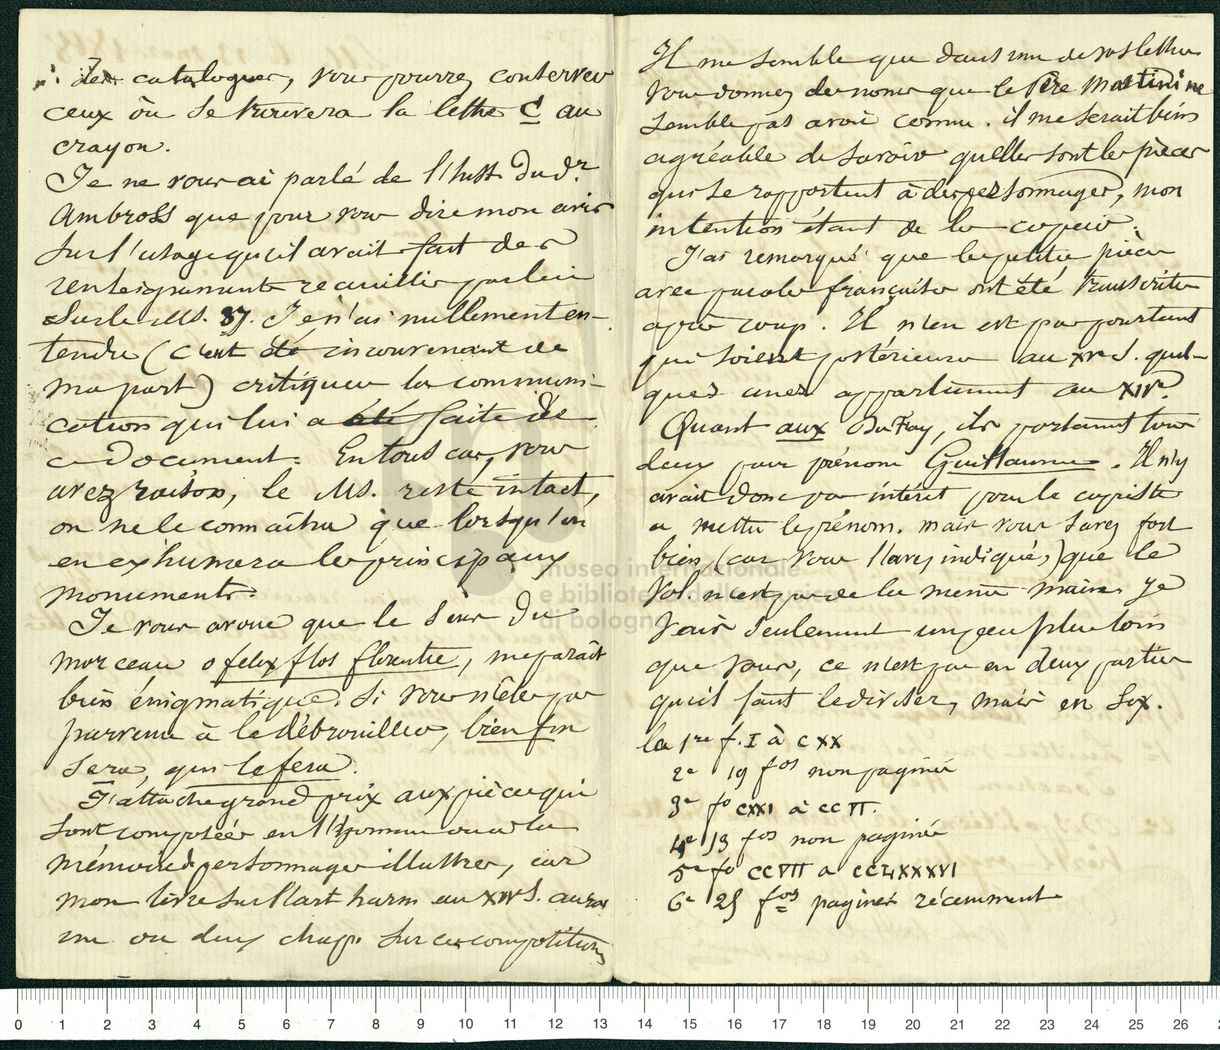 des catalogues, vous pourrez conserver
ceux où se trouvera la lettre C au
crayon.
Je ne vous ai parlé de l'hist. du dr.
Ambross que pour vous dire mon avis
sur l'usage qu'il avait fait des
renseignements recueillis par lui
sur le MS. 37. Je n'ai nullement en-
tendu (c'eut été inconvenant de
ma part) critiquer la communi-
cation qui lui a été faite de
ce document. En tous cas, vous
avez raison, le MS. reste intact,
on ne le connaîtra que lorsqu'on
en exhumera les principaux
monuments.
Je vous avoue que le sens du
morceau o felix flos florentie, me paraît
bien énigmatique. Si vous n'êtes pas
parvenu à le débrouiller, bien fin
sera, qui le fera.
J'attache grand prix aux pièces qui
sont composées en l'honneur ou à la
mémoire de personnages illustres, car
mon livre sur l'art harm. au XIVe S. aura
un ou deux chap. sur ces compositions
Il me semble que dans une de vos lettres
vous donnez des noms que le Père Martini ne
semble pas avoir connu. il me serait bien
agréable de savoir quelles sont les pièces
qui se rapportent à des personnages, mon
intention étant de les copier.
J'ai remarqué que les petites pièces
avec paroles françaises ont été transcrites
après coup. Il n'en est pas pourtant
qui soient postérieures au XVe S. quel-
ques unes appartiennent au XIVe.
Quant aux Du Fay, ils portaient tous
deux pour prénom Guillaume. Il n'y
avait donc pas intérêt pour le copiste
a mettre le prénom. mais vous savez fort
bien (car vous l'avez indiqué,) que le
Vol. n'est pas de la même main. Je
vais seulement un peu plus loin
que vous, ce n'est pas en deux parties
qu'il faut le diviser, mais en six.
la 1re f. I à CXX
2e 19 fos non paginés
3e fo CXXI à CCVI.
4e 13 fos non paginés
5e fo CCVII a CCLXXXVI
6e 25 fos paginés récemment
museo internazionale
e biblioteca della musica
di bologna
0 1 2 3 4 5 6 7 8 9 10 11 12 13 14 15 16 17 18 19 20 21 22 23 24 25 26